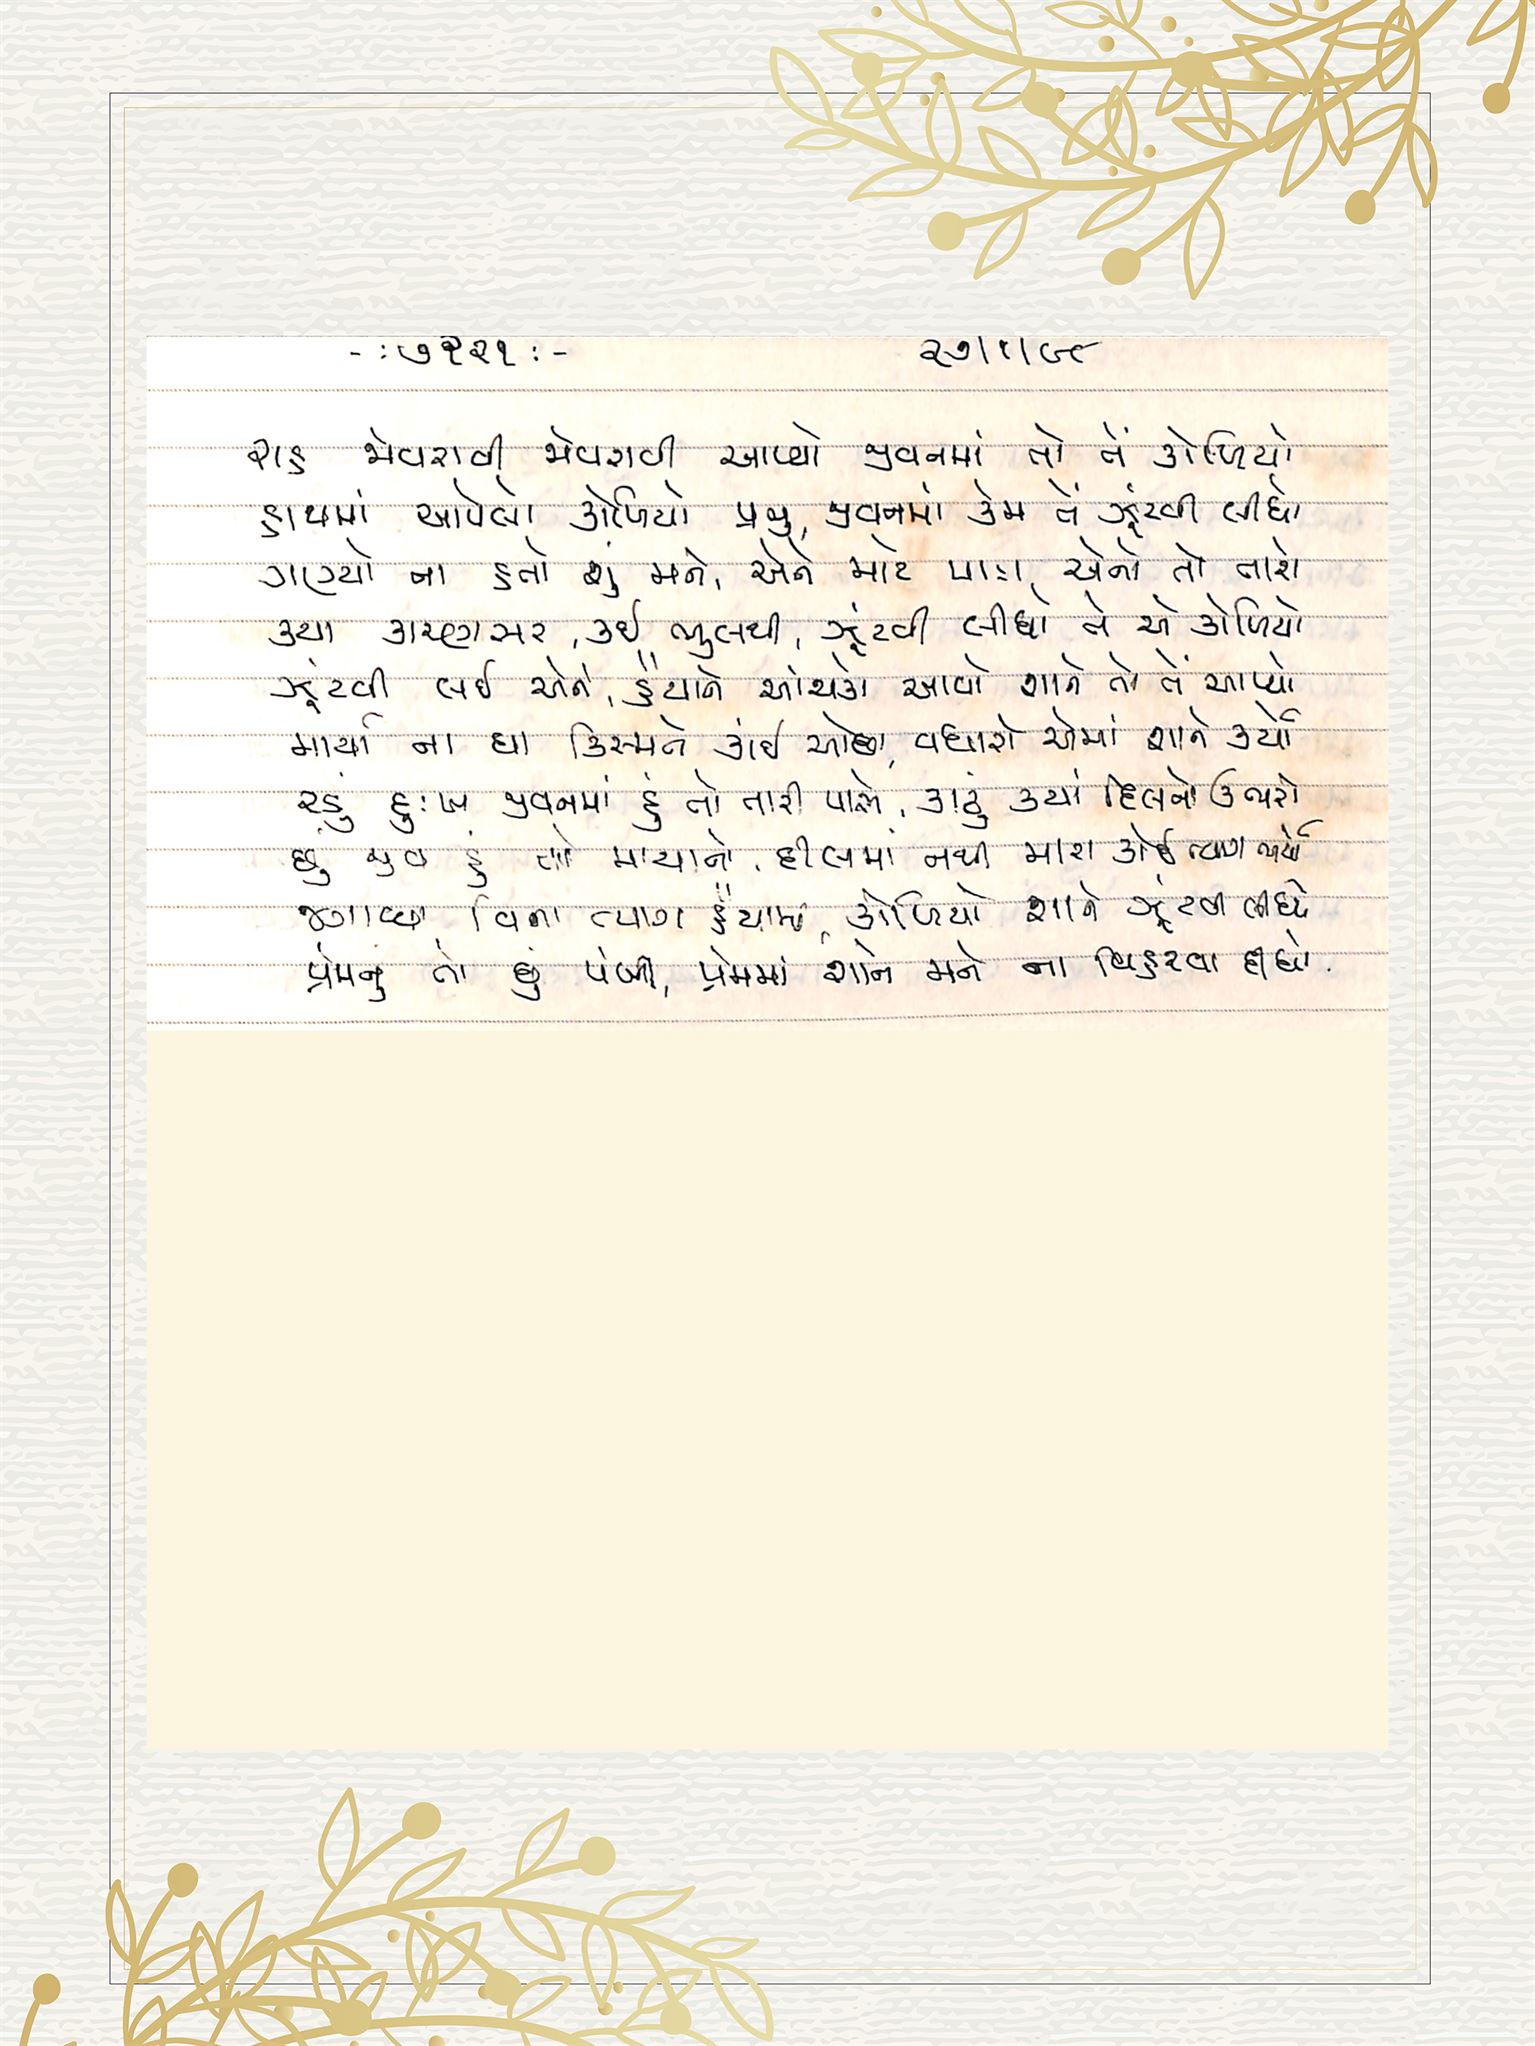 -:૭૧૨૧:- ૨૭/૧/૯૮
રાહ જોવરાવી જોવરાવી આપ્યો જીવનમાં તો તેં કોળિયો
હાથમાં આવેલો કોળિયો પ્રભુ, જીવનમાં કેમ તેં ઝૂંટવી લીધો
ગણ્યો ના હતો શું મને, એને માટે પાત્ર, એનો તો તારો
કયા કારણસર, કઈ ભૂલથી, ઝૂંટવી લીધો તે એ કોળિયો
ઝૂંટવી લઈ એને, હૈયાને આંચકો આવો શાને તો તેં આપ્યો
માર્યા ના ઘા કિસ્મને કાંઈ ઓછા, વધારો એમાં શાને કર્યો
રડું દુઃખ જીવનમાં હું તો તારી પાસે, કાઢું ક્યાં દિલનો ઉભરો
છું જીવ હું તો માયાનો, દીલમાં નથી મારા કોઈ ત્યાગ ભર્યો
જગાવ્યા વિના ત્યાગ હૈયામાં, કોળિયો શાને ઝૂંટવી લીધો
પ્રેમનું તો છું પંખી, પ્રેમમાં શાને મને ના વિહરવા દીધો.